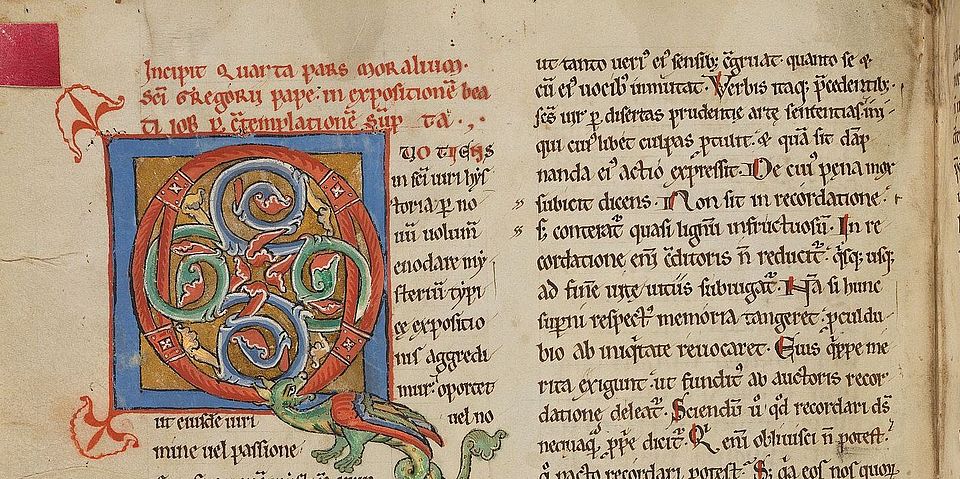 Incipit Quarta pars moraliům·
Sc̄i Gregorii pape· in expositionē bea
ti iob p̱ cͨtemplationē sūp ta·,·
QUOTIENS
in sc̄i uiri hys
toria p̱ no
uū uolum̄
enodare my
steriū typi
ce expositio
nis aggredi
mur· oportet
ut eiusde uiri uel no
mine uel passione
ut tanto ueri᷒ ei᷒ sensib; cͨgruat· quanto se &
cū ei᷒ uocib᷒ inmutat· Verbis itaq; p̄cedentib;
sc̄s uir p̱ disertas prudentie arte sententias·ini
qui cui᷒libet culpas ꝓtulit· & quā sit dāp
nanda ei᷒ actio expressit· De cui᷒ pena mox
subicit dicens· Non sit in recordatione·
s; conterat᷑ quasi lignū infructuosū· In re
cordatione eni̅ cͨditoris n̄ reducit᷑· qͥsqͥs; usq;
ad finē uite uitiis subiugat᷑· Nā si hunc
superni respect᷒ memoria tangeret· ꝓculdu
bio ab iniqͥtate reuocaret· Eius qͥppe me
rita exigunt· ut fundit᷒ ab auctoris recor
datione deleat᷑· Sciendū ů qd̄ recordari ds̄
nequaq̄ ꝓprie dicit᷑· Qͥ eni̅ obliuisci n̄ potest·
qͦ pacto recordari potest· S; qͥa eos nos quoq̄